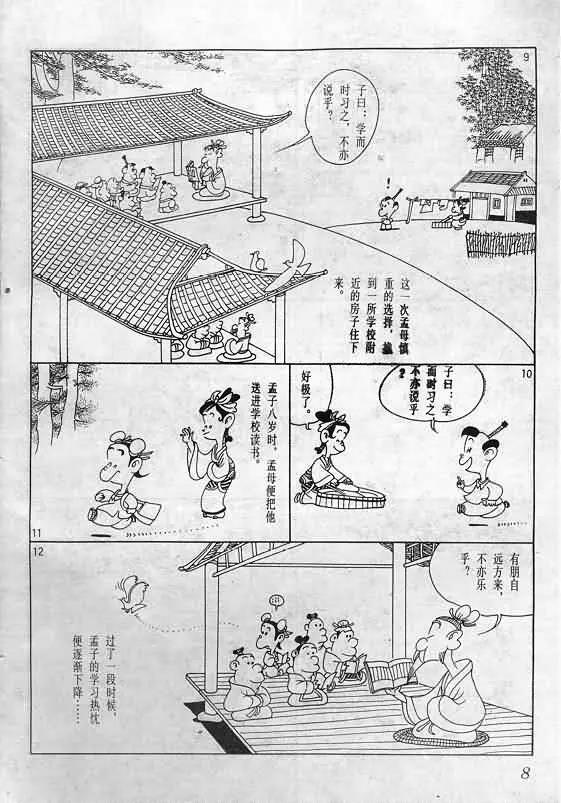 9
子曰：学而
时习之，不亦
说乎？
!
这一次孟母慎
重的选择，搬
到一所学校附
近的房子住下
来。
10
子曰：学
而时习之
不亦说乎
？
好极了。
11
孟子八岁时，孟母便把他
送进学校读书。
12
有朋自
远方来，
不亦乐
乎？
过了一段时候，
孟子的学习热忱
便逐渐下降……
8